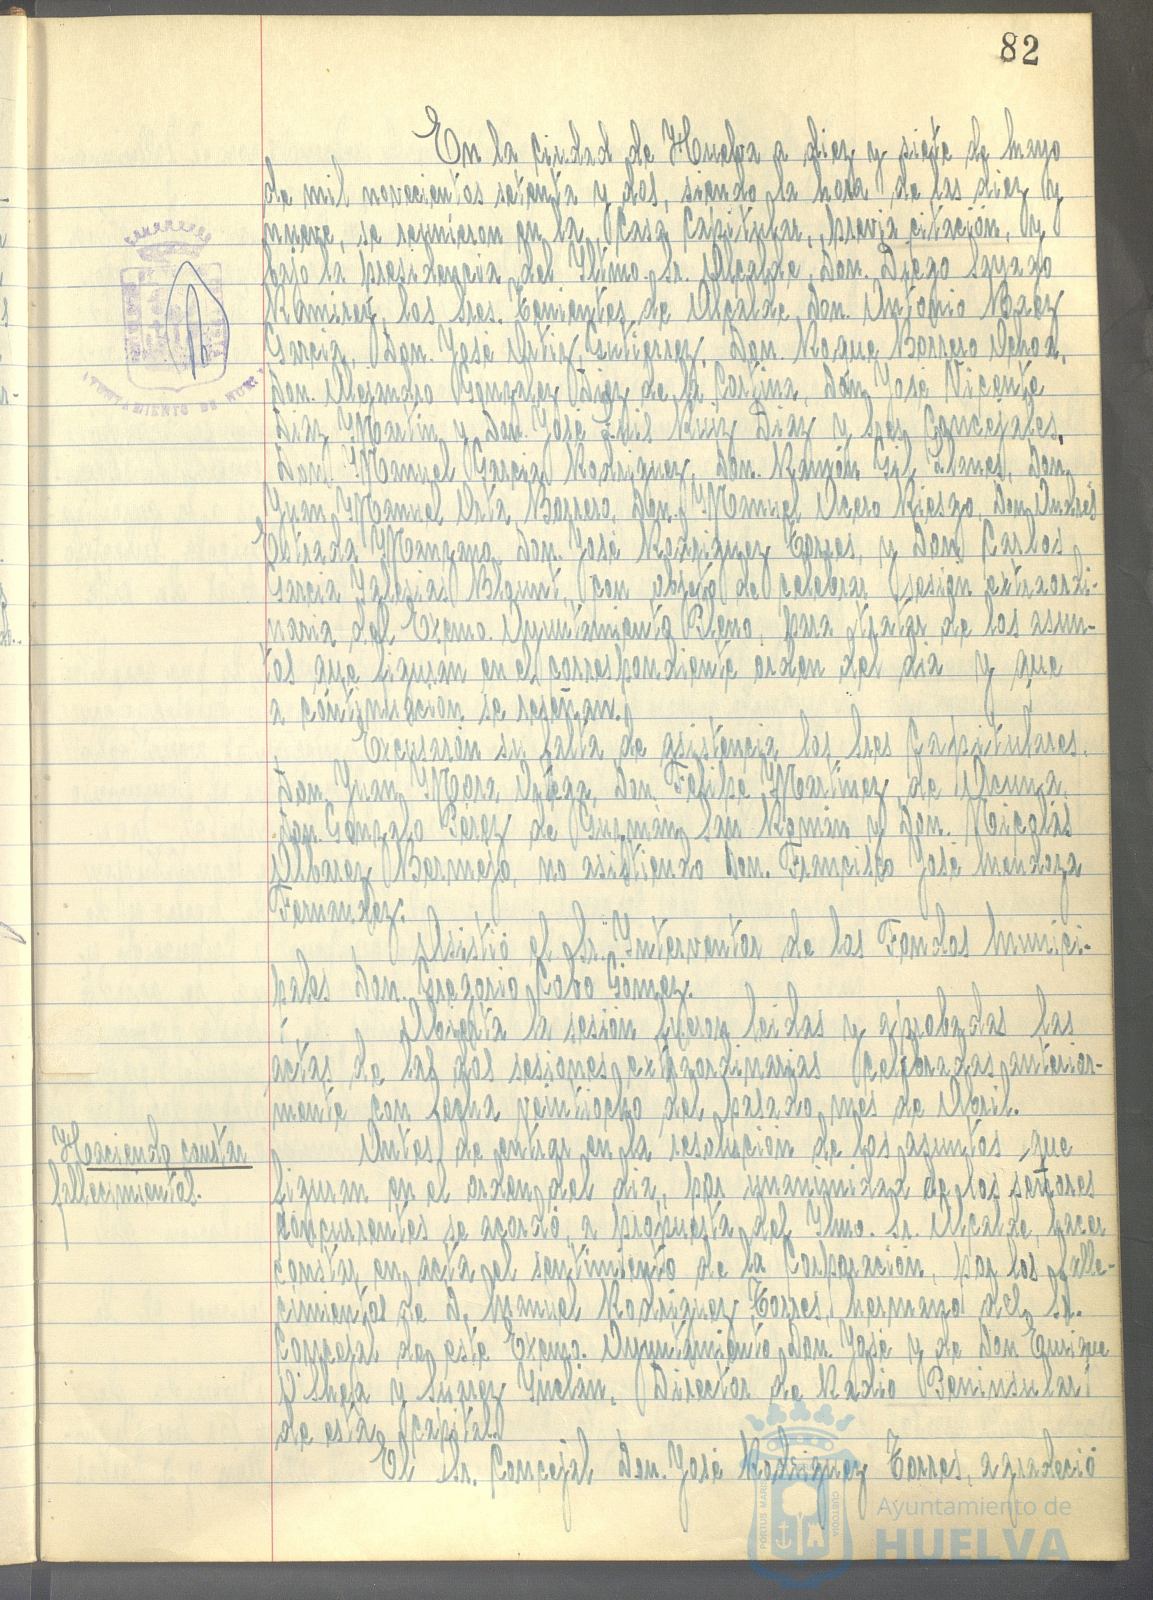 82
En la Ciudad de Huelva a diez y siete de mayo
de mil novecientos setenta y dos, siendo la hora de las diez y
nueve, se reunieron en la Casa Capitular, previa citación, y
bajo la presidencia del Iltmo. Sr. Alcalde, Don Diego Sayago
Ramirez, los Sres. Tenientes de Alcalde, Don Antonio Baez
Garcia, Don José Ortiz Gutierrez, Don Roque Borrero Ochoa,
Don Alejandro Gonzalez Diez de la Cortina, Don José Vicente
Diaz Martin y Don José Luis Ruiz Diaz y Sres. Concejales,
Don Manuel Garcia Rodriguez, Don Ramón Gil Llanes, Don
Juan Manuel Orta Borrero, Don Manuel Acero Riesgo, Don Andrés
Estrada Manzano, Don José Rodriguez Torres, y Don Carlos
Garcia Iglesias Blount, con objeto de celebrar sesión extraordi-
naria del Excmo. Ayuntamiento Pleno, para tratar de los asun-
tos que figuran en el correspondiente orden del dia y que
a continuación se reseñan.
Excusaron su falta de asistencia los Sres Capitulares,
Don Juan Mora Ortega, Don Felipe Martinez de Acuña,
Don Gonzalo Pérez de Guzmán San Román y Don Nicolás
Alvarez Bermejo, no asistiendo Don Francisco José Mendoza
Fernandez.
Asistió el Sr. Interventor de los Fondos Munici-
pales Don Gregorio Cobo Gómez.
Abierta la sesión fueron leidas y aprobadas las
actas de las dos sesiones extraordinarias celebradas anterior-
mente con fecha veintiocho del pasado mes de Abril.
Haciendo constar
fallecimientos.
Antes de entrar en la resolución de los asuntos que
figuran en el orden del dia, por unanimidad de los señores
concurrentes se acordó, a propuesta del Ilmo. Sr. Alcalde, hacer
constar en acta el sentimiento de la Corporación, por los falle-
cimientos de D. Manuel Rodriguez Torres, hermano del Sr.
Concejal de este Excmo. Ayuntamiento Don José y de Don Enrique
O'Shea y Suarez Inclán, Director de Radio Peninsular
de esta Capital.
El Sr. Concejal Don José Rodriguez Torres, agradeció
PORTUS MARIS
CUSTODIA
Ayuntamiento de
HUELVA